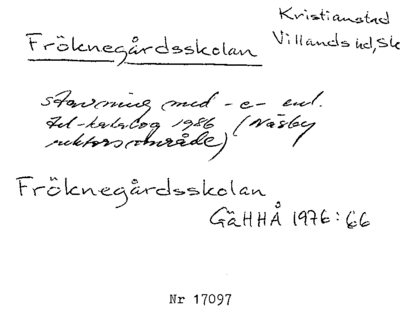 Kristianstad
Fröknegårdsskolan
Villands hd, Sk
stavning med -e- enl.
tel-katalog 1986 (Näsby
rektorsområde)
Fröknegårdsskolan
GäHHÅ 1976:66
Nr 17097